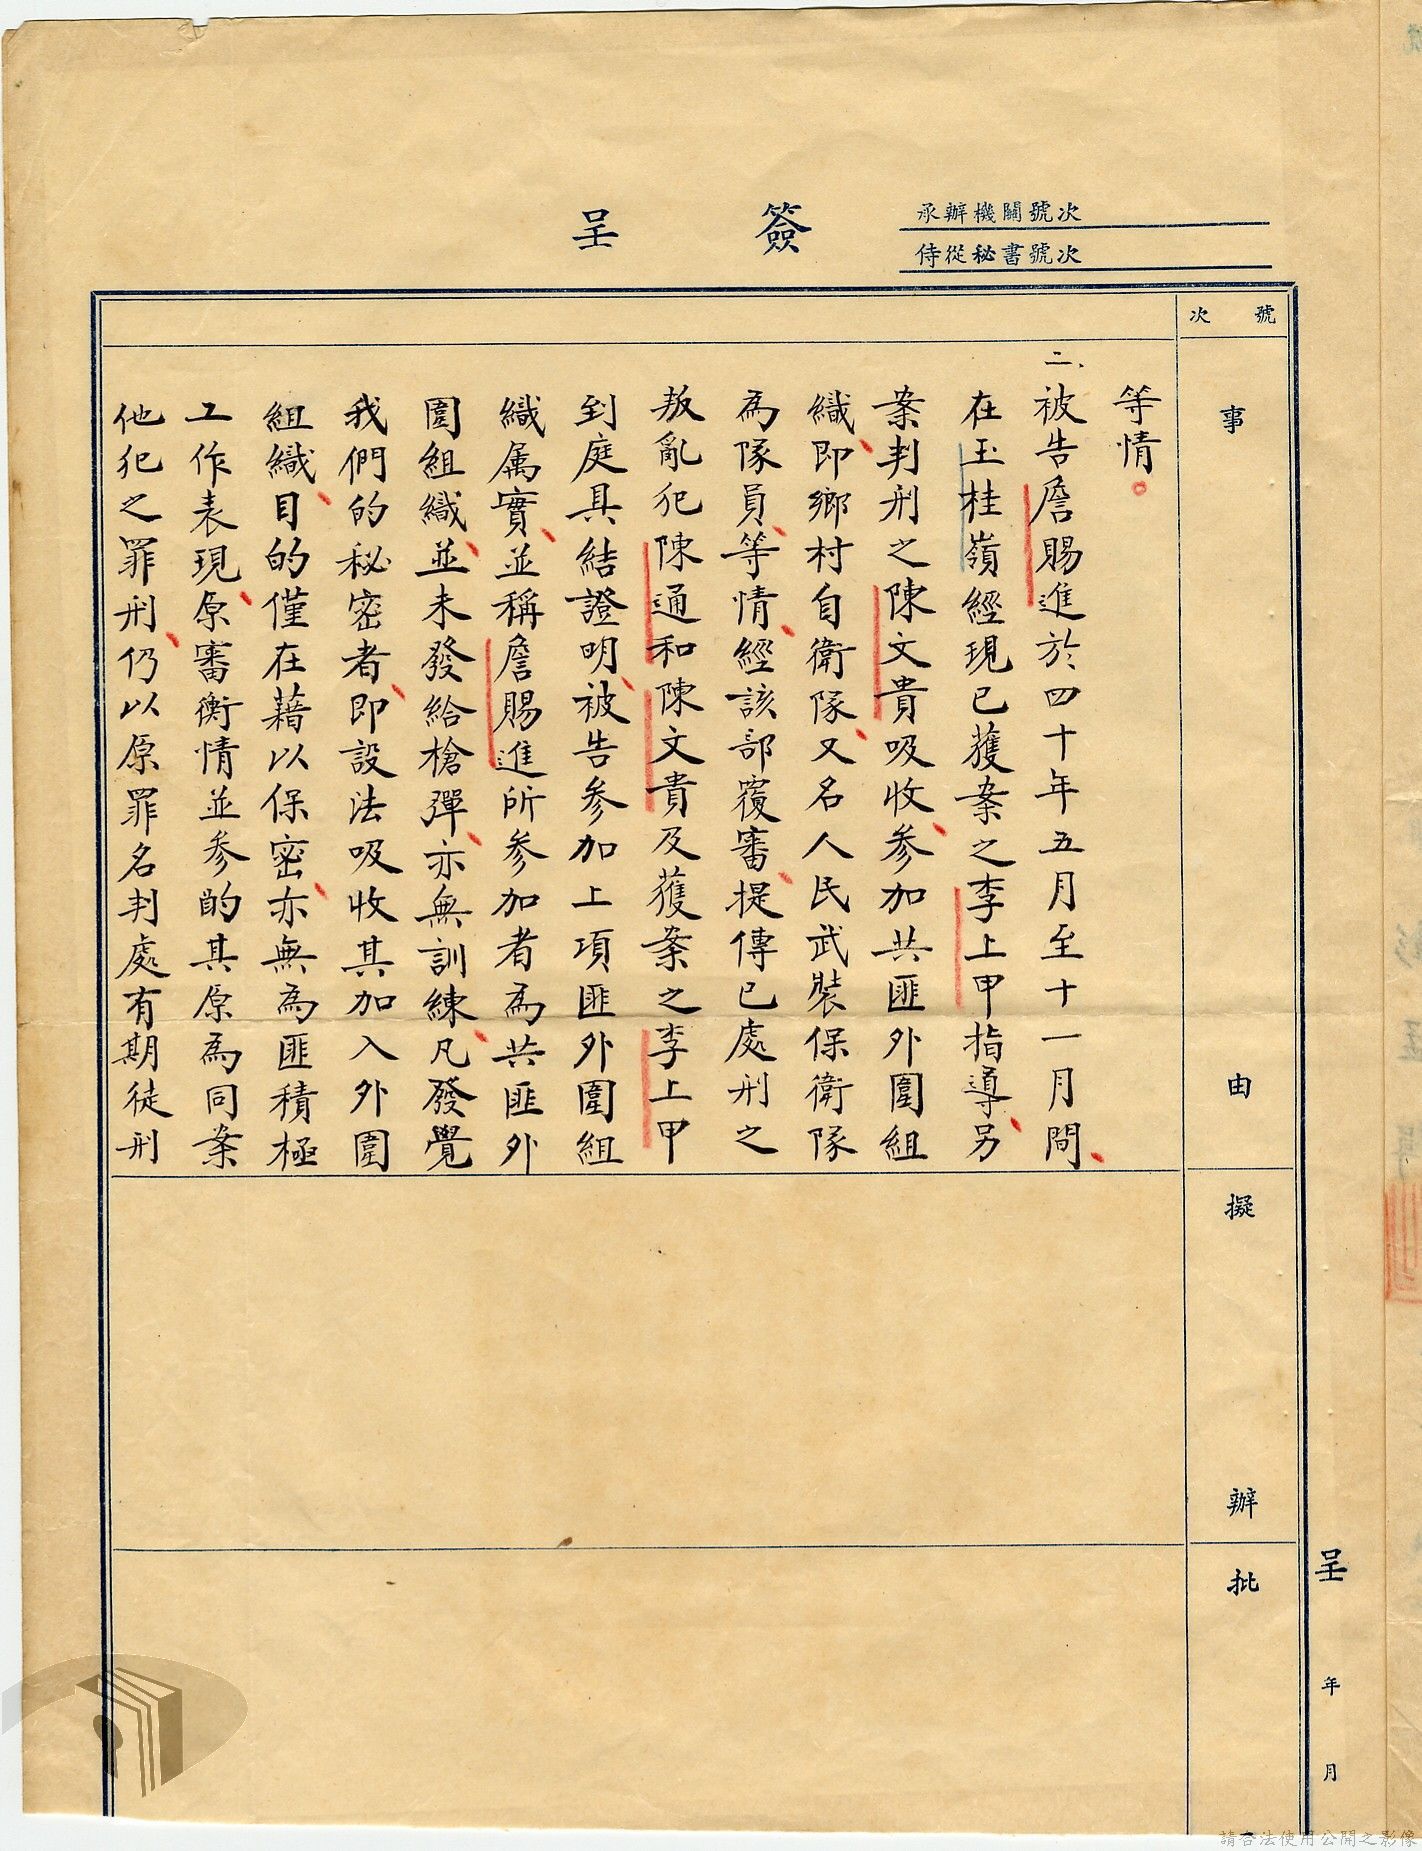 簽呈
承辦機關號次
侍從秘書號次
號次
事由
擬辦
批
呈
年
月
等情。
二、被告詹賜進於四十年五月至十一月間、
在玉桂嶺經現已獲案之李上甲指導、另
案判刑之陳文貴吸收、參加共匪外圍組
織、即鄉村自衛隊、又名人民武裝保衛隊
為隊員、等情、經該部覆審、提傳已處刑之
叛亂犯陳通和陳文貴及獲案之李上甲
到庭具結證明、被告參加上項匪外圍組
織属實、並稱詹賜進所參加者為共匪外
圍組織、並未發給槍彈、亦無訓練、凡發覺
我們的秘密者、即設法吸收其加入外圍
組織、目的僅在藉以保密、亦無為匪積極
工作表現、原審衡情並參酌其原為同案
他犯之罪刑、仍以原罪名判處有期徒刑
請合法使用公開之影像